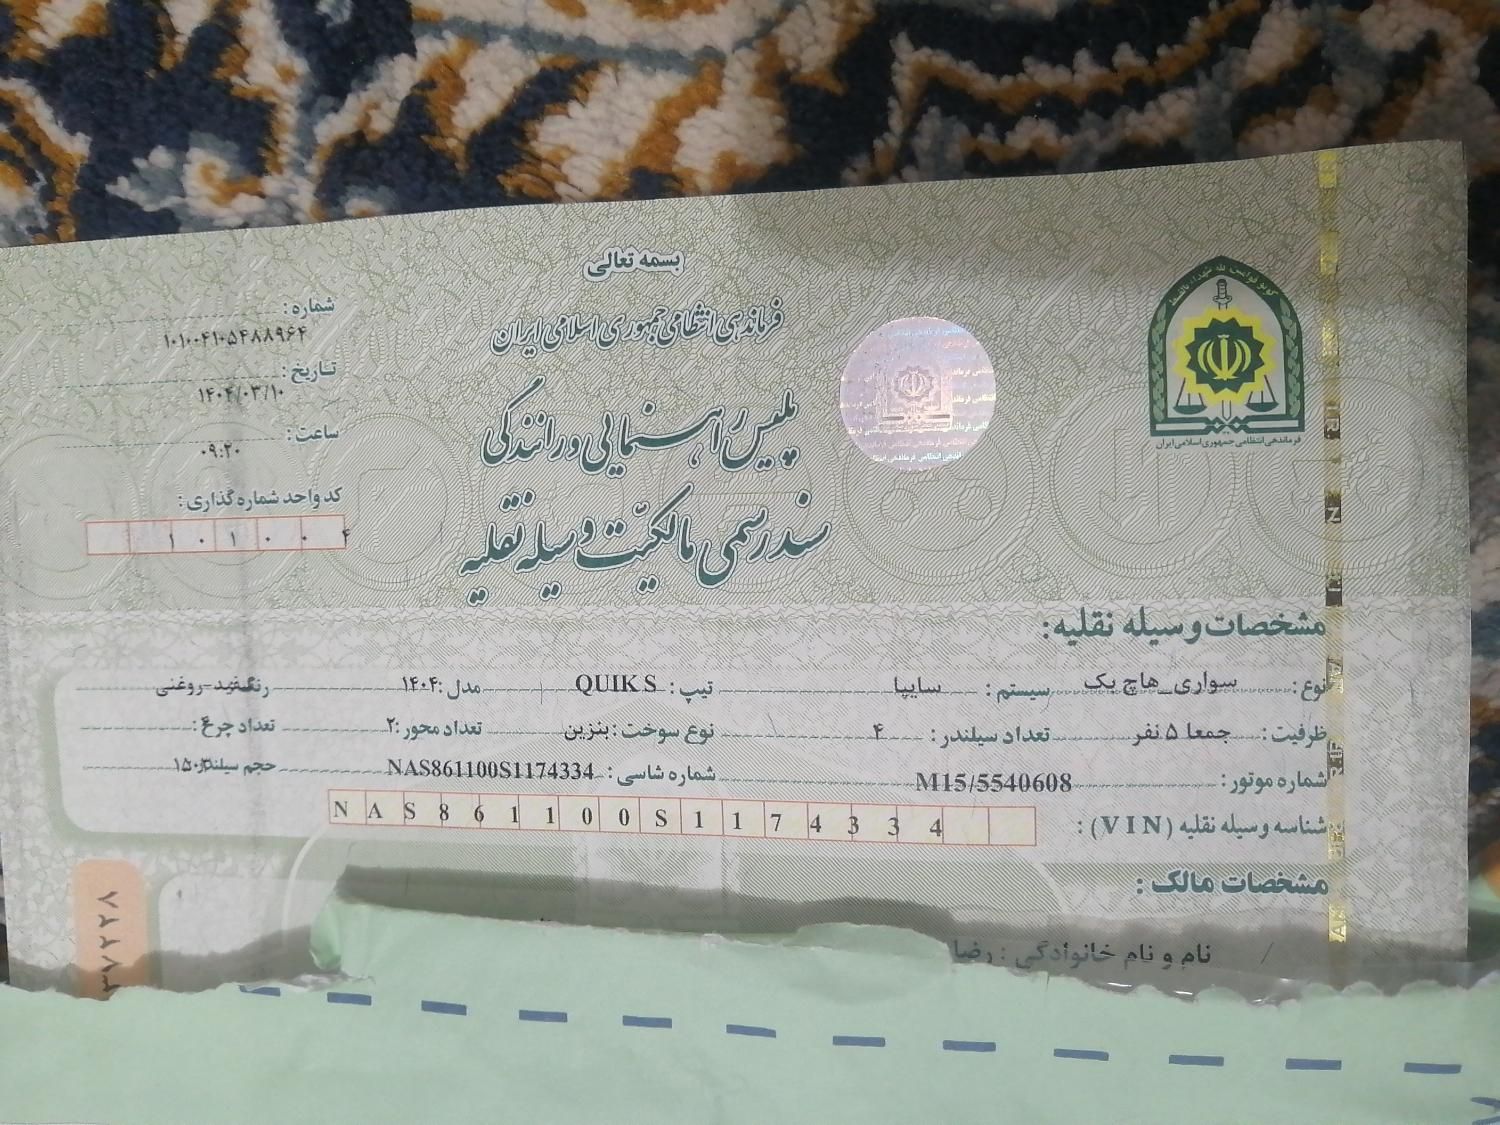 بسمه تعالی
فرماندهی انتظامی جمهوری اسلامی ایران
پلیس راهنمایی و رانندگی
سند رسمی مالکیت وسیله نقلیه
شماره :
۱۰۱۰۰۴۱۰۵۴۸۸۹۶۴
تاریخ :
۱۴۰۴/۰۳/۱۰
ساعت :
۰۹:۲۰
کد واحد شماره گذاری :
۱ ۰ ۱ ۰ ۰ ۴
فرماندهی انتظامی جمهوری اسلامی ایران
مشخصات وسیله نقلیه:
نوع: سواری_هاچ بک سیستم : سایپا تیپ : QUIK S مدل :۱۴۰۴ رنگ سفید-روغنی
ظرفیت : جمعا ۵ نفر تعداد سیلندر : ۴ نوع سوخت : بنزین تعداد محور :۲ تعداد چرخ :
شماره موتور : M15/5540608 شماره شاسی : NAS861100S1174334 حجم سیلندر
شناسه وسیله نقلیه (VIN) : N A S 8 6 1 1 0 0 S 1 1 7 4 3 3 4
مشخصات مالک :
نام و نام خانوادگی : رضا
۳۷۲۲۸